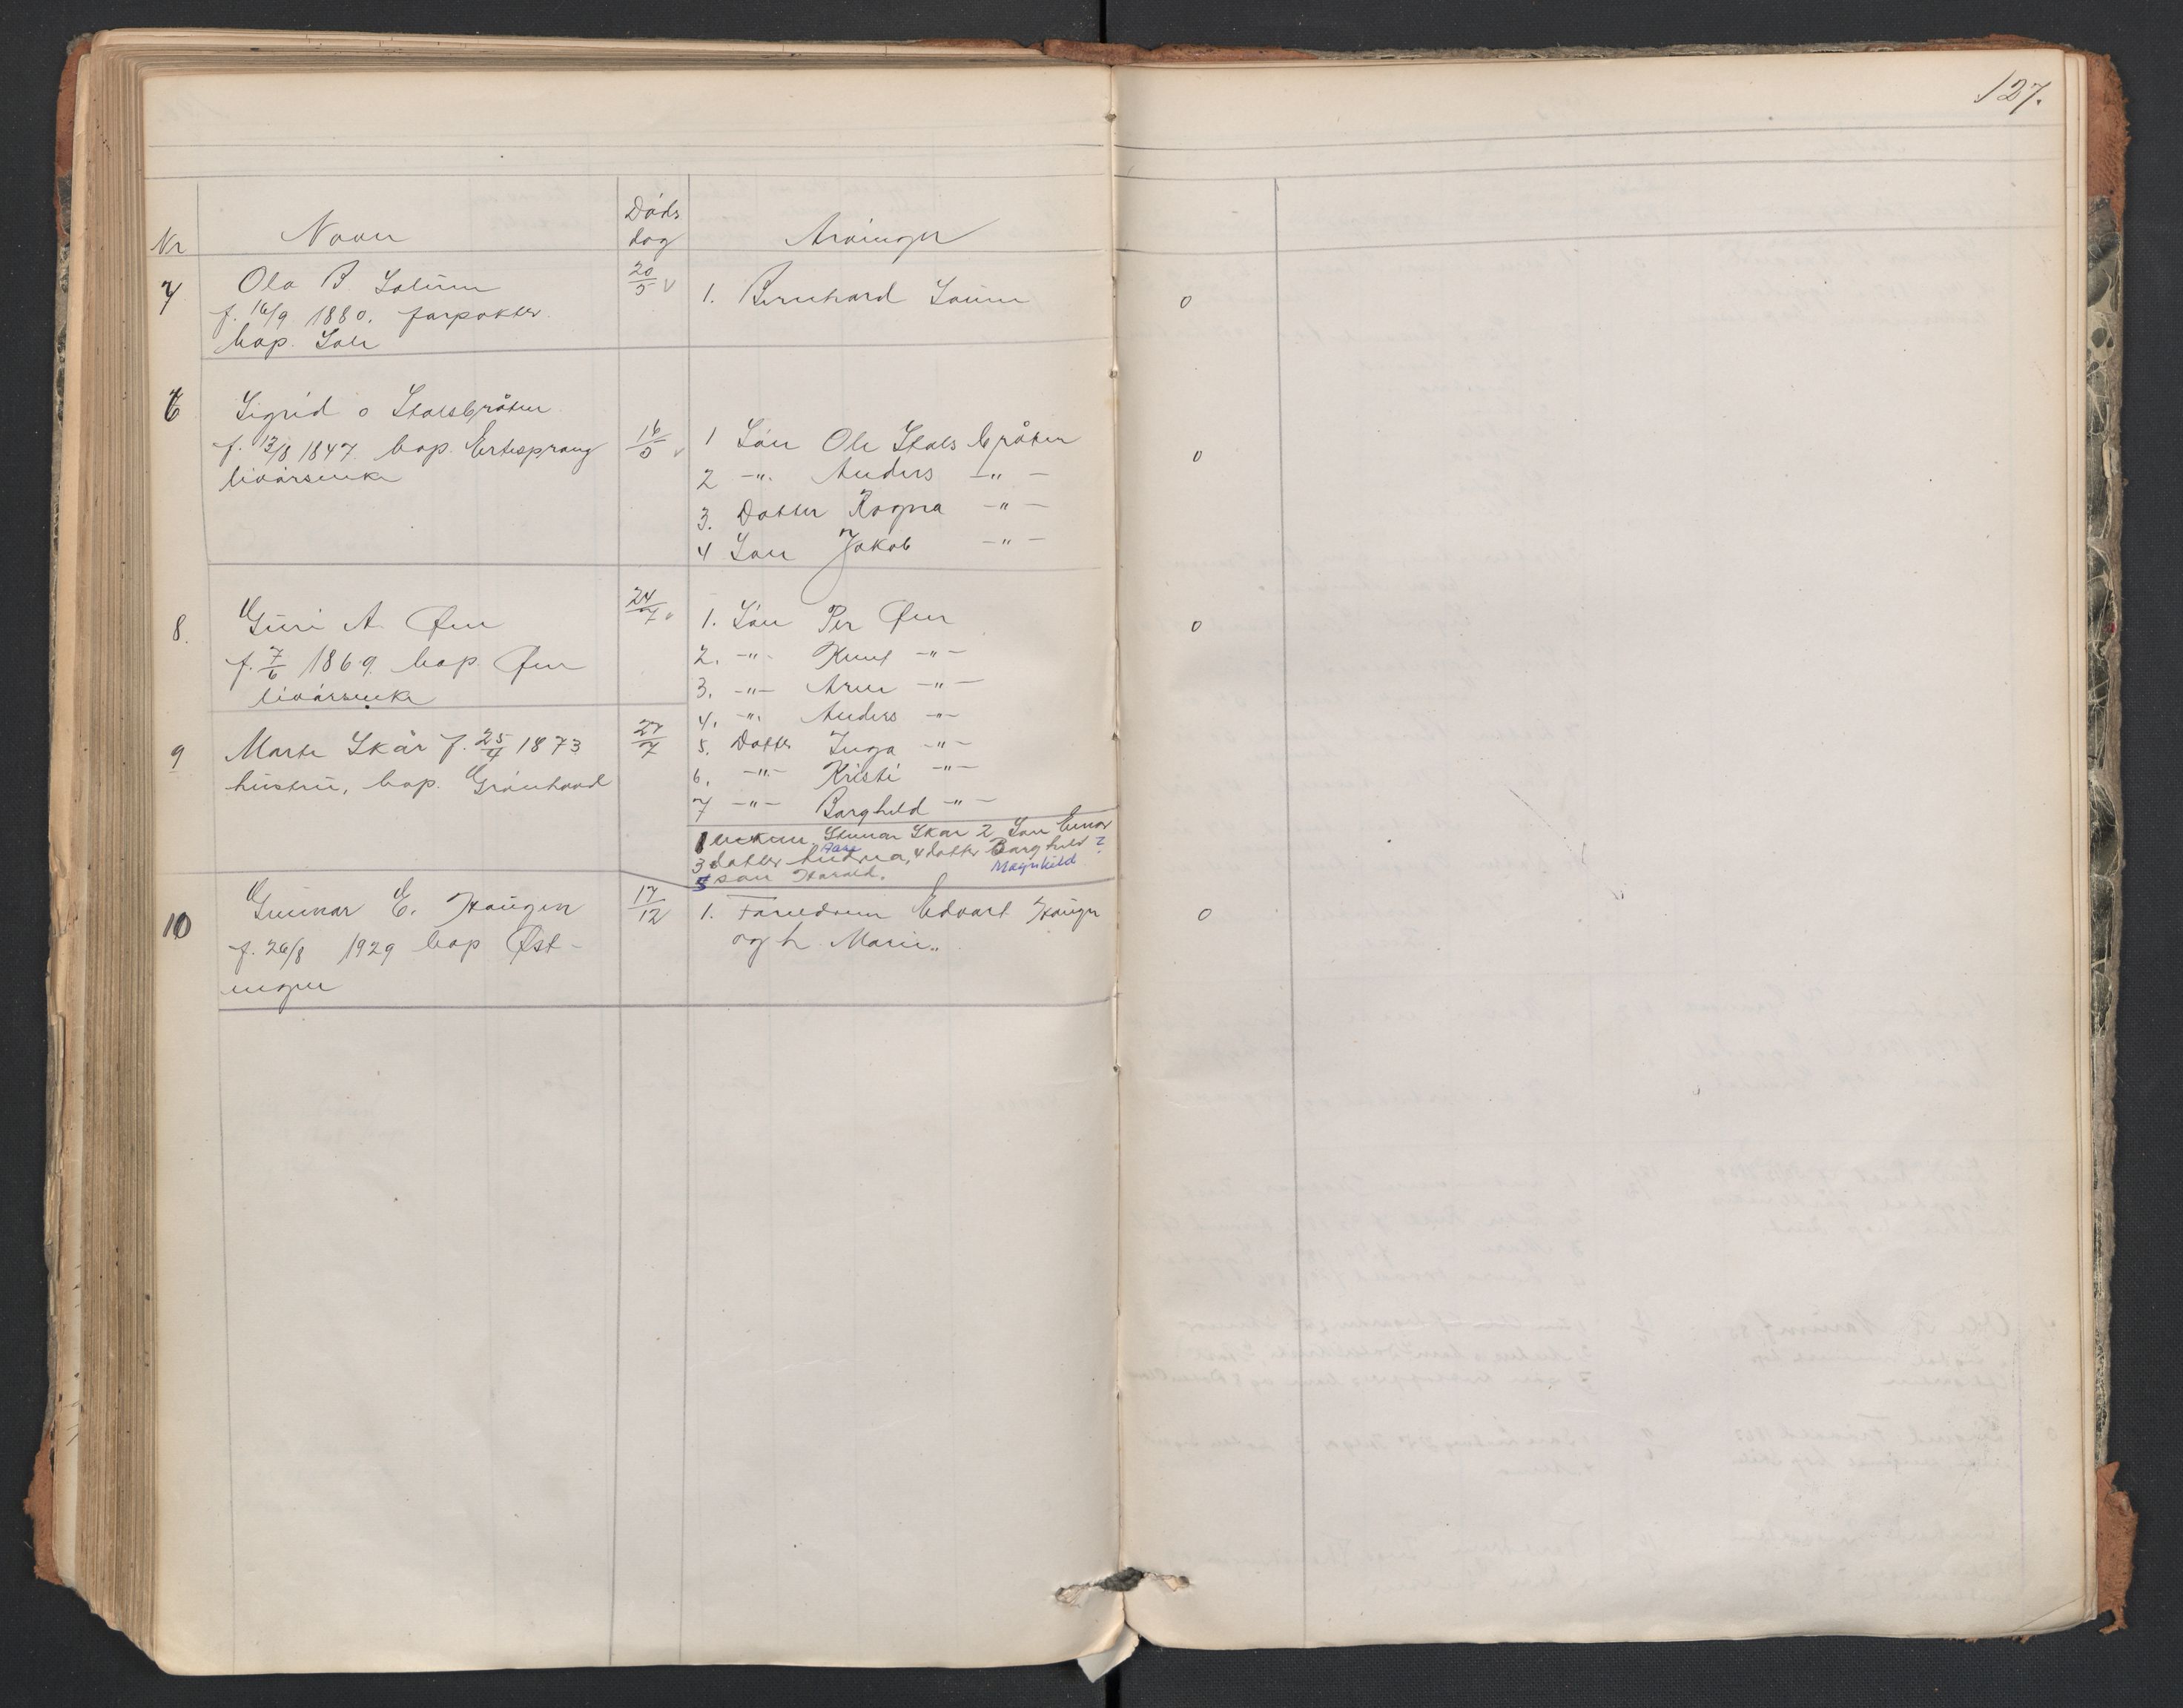 127.
Nr Navn Døds dag Arvinger
7 Ola B. Solum 20/5 v 1. Bernhard Solum 0
f. 16/9 1880. forpakter.
bop. Soli
6 Sigrid o Stalsbråten
f. 13/8 1847. bop. Ertesprang 16/5 v 1 Søn Ole Stalsbråten 0
livårsenke 2 -"- Anders -"-
3. Datter Ragna -"-
4 Søn Jakob -"-
8. Guri A. Øen 24/7 v 1. Søn Per Øen 0
f. 7/6 1869. bop. Øen 2. -"- Knut -"-
livårsenke 3. -"- Arne -"-
4. -"- Anders -"-
9 Marte Skår f. 25/4 1873 27/7 5. Datter Inga -"-
hustru, bop. Grønhovd 6. -"- Kristi -"-
7 -"- Borghild -"-
1 Gunnar Skår 2 Søn Einar
3 datter Andrea, 4 datter Borghild ?
Magnhild
5 søn Harald.
10 Gunnar E. Haugen 17/12 1. Foreldrene Edvart Haugen 0
f. 26/8 1929 bop Øst- og h. Marie "
engen